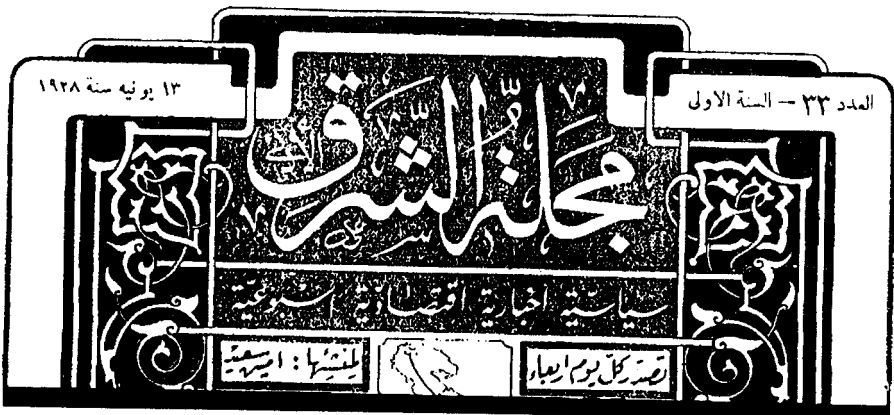 العدد ٣٣ – السنة الاولى
١٣ يونيه سنة ١٩٢٨
مجلة الشرق
سياسية اخبارية اقتصادية اسبوعية
تصدر كل يوم اربعاء
لمنشئها : امين سعيد